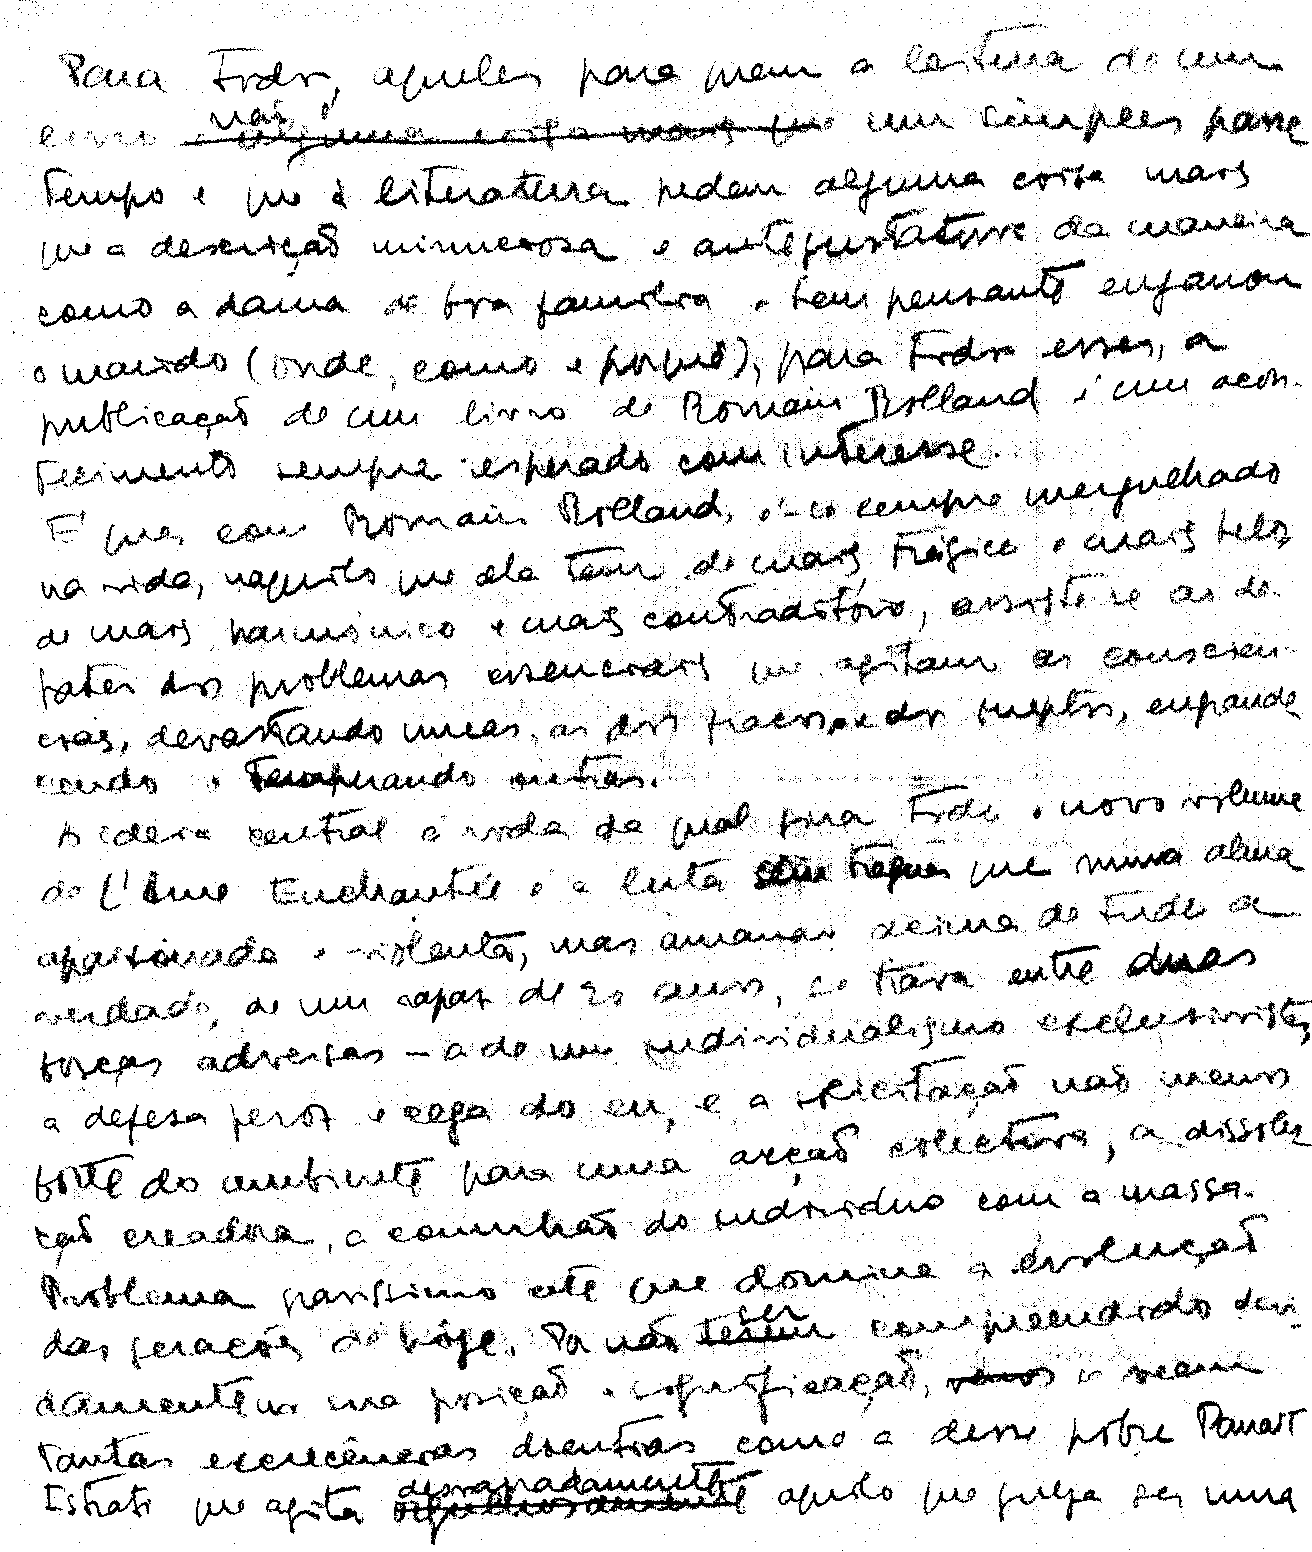 Para todos, aqueles para quem a leitura de um
livro não é um simples passe
tempo e que à literatura pedem alguma coisa mais
que a descrição minuciosa e da maneira
como a dama de boa familia e bem pensante enganou
o marido (onde, como e porquê), para todos esses, a
publicação de um livro de Romain Rolland é um acon-
tecimento sempre esperado com interesse.
É que, com Romain Rolland, é-se sempre mergulhado
na vida, naquilo que ela tem de mais trágico e mais belo,
de mais harmónico e mais contraditório, assiste-se ao de-
bater dos problemas essenciais que agitam as conscien-
cias, devastando umas, as dos fracos e dos ineptos, engrande
cendo e temperando outras.
A ideia central à roda da qual gira todo o novo volume
de L'Ame Enchantée é a luta sem tréguas que numa alma
apaixonada e violenta, mas amando acima de tudo a
verdade, de um rapaz de 20 anos, se trava entre duas
forças adversas – a de um individualismo exclusivista,
a defesa feroz e cega do eu, e a solicitação não menos
forte do ambiente para uma acção colectiva, a dissolu
ção creadora, a comunhão do individuo com a massa.
Problema gravissimo este que domina a evolução
das gerações de hoje. Por não ser compreendido devi-
damente na sua posição e significação, se veem
tantas excrecências doentias como a desse pobre Panait
Istrati que agita desvairadamente aquilo que julga ser uma